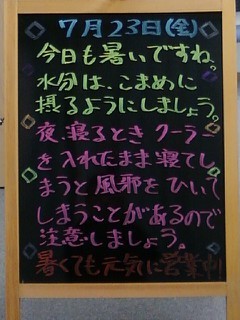 7月23日(金)
今日も暑いですね。
水分は、こまめに
摂るようにしましょう。
夜、寝るとき クーラー
を入れたまま寝てし
まうと 風邪をひいて
しまうことがあるので
注意しましょう。
暑くても元気に営業中